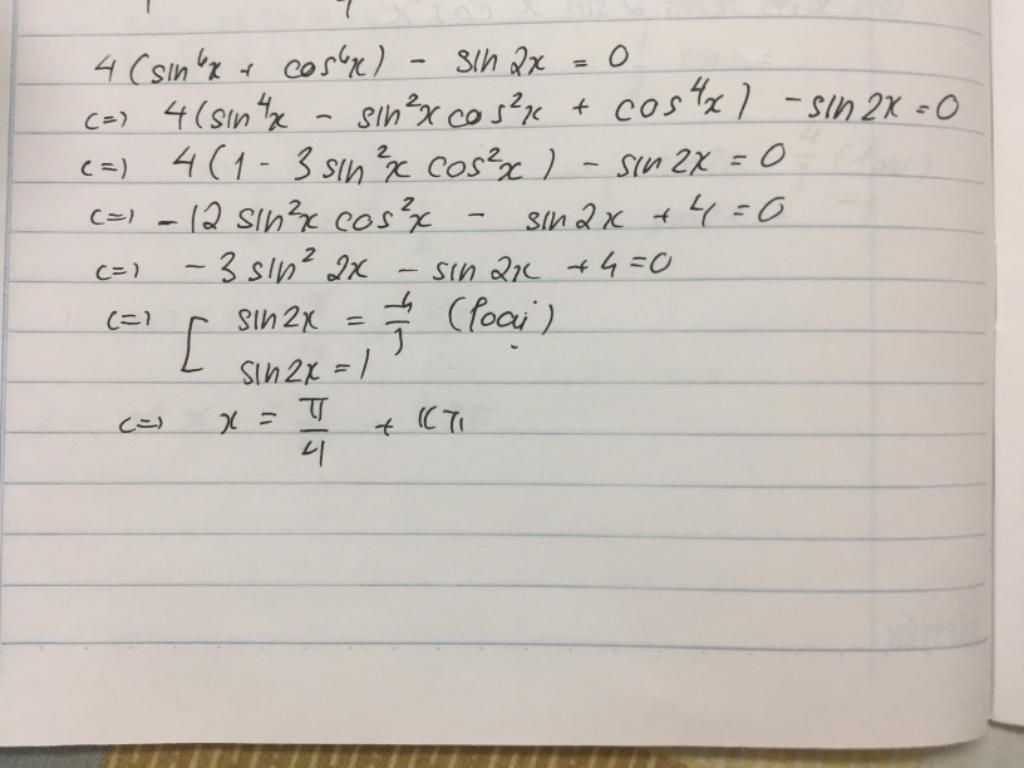 4(sin⁶x + cos⁶x) - sin 2x = 0
<=> 4(sin⁴x - sin²x cos²x + cos⁴x) - sin 2x = 0
<=> 4(1 - 3 sin²x cos²x) - sin 2x = 0
<=> -12 sin²x cos²x - sin 2x + 4 = 0
<=> -3 sin² 2x - sin 2x + 4 = 0
<=> [ sin 2x = -4/3 (loại)
sin 2x = 1
<=> x = π/4 + kπ